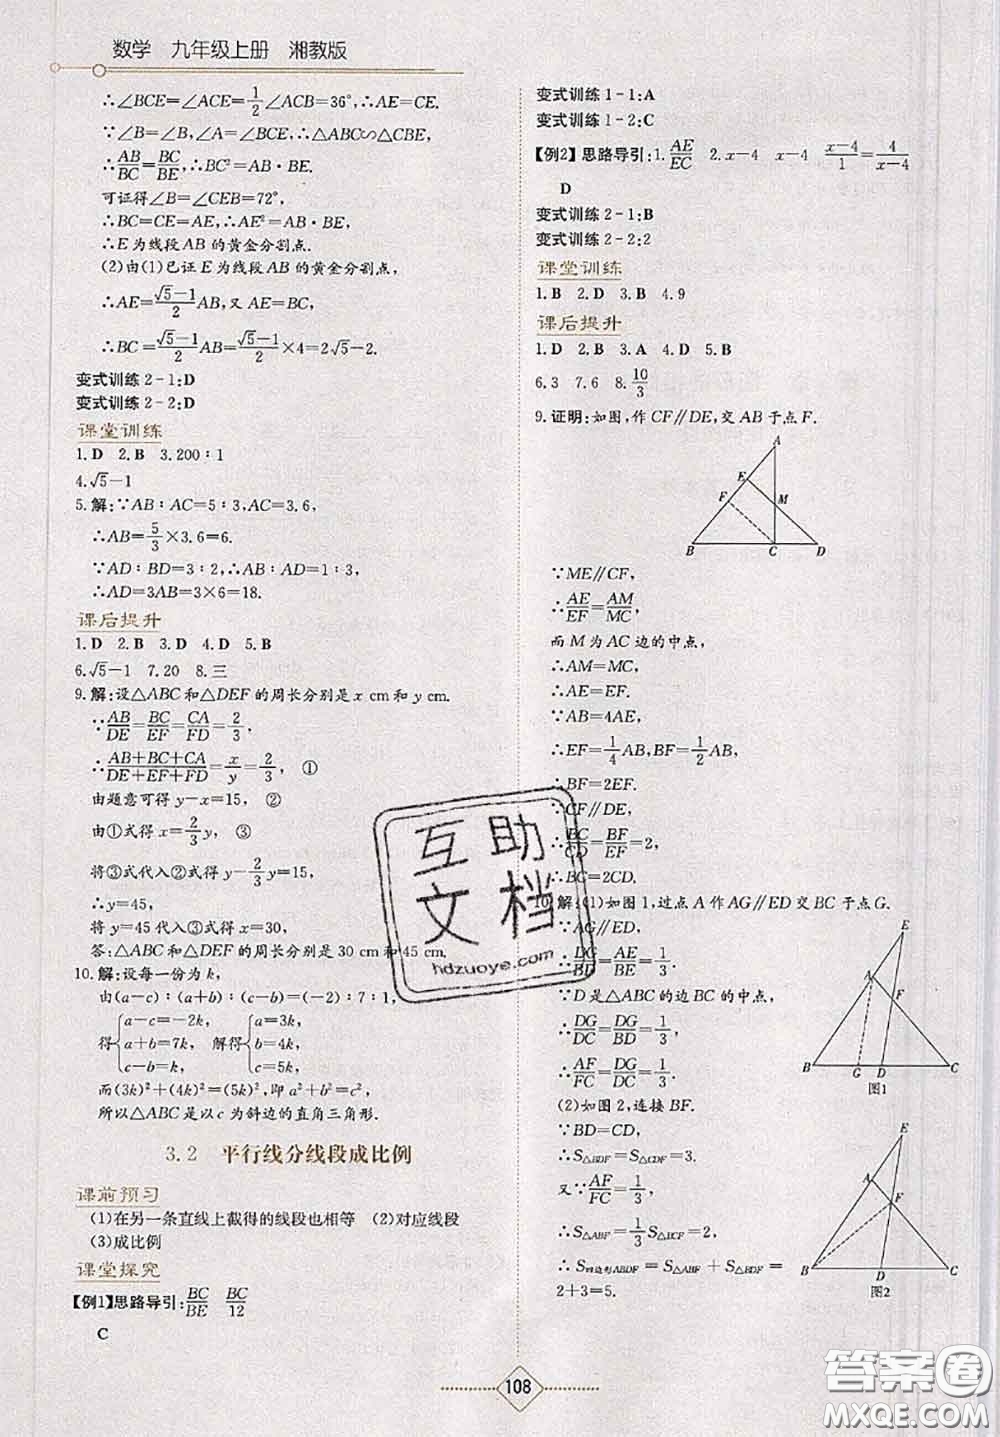 数学 九年级上册 湘教版
∴∠BCE=∠ACE=1/2∠ACB=36°,∴AE=CE.
∵∠B=∠B,∠A=∠BCE,∴△ABC∽△CBE,
∴AB/BC=BC/BE,∴BC²=AB·BE.
可证得∠B=∠CEB=72°.
∴BC=CE=AE,∴AE²=AB·BE,
∴E为线段AB的黄金分割点.
(2)由(1)已证E为线段AB的黄金分割点,
∴AE=(√5-1)/2AB,又AE=BC,
∴BC=(√5-1)/2AB=(√5-1)/2×4=2√5-2.
变式训练2-1:D
变式训练2-2:D
课堂训练
1.D 2.B 3.200∶1
4.√5-1
5.解:∵AB∶AC=5∶3,AC=3.6,
∴AB=5/3×3.6=6.
∵AD∶BD=3∶2,∴AB∶AD=1∶3,
∴AD=3AB=3×6=18.
课后提升
1.D 2.B 3.D 4.D 5.B
6.√5-1 7.20 8.三
9.解:设△ABC和△DEF的周长分别是x cm和y cm.
∵AB/DE=BC/EF=CA/FD=2/3,
∴(AB+BC+CA)/(DE+EF+FD)=x/y=2/3, ①
由题意可得y-x=15, ②
由①式得x=2/3y, ③
将③式代入②式得y-2/3y=15,
∴y=45,
将y=45代入③式得x=30,
答:△ABC和△DEF的周长分别是30 cm和45 cm.
10.解:设每一份为k,
由(a-c)∶(a+b)∶(c-b)=(-2)∶7∶1,
得{a-c=-2k, a+b=7k, c-b=k, 解得{a=3k, b=4k, c=5k.
而(3k)²+(4k)²=(5k)²,即a²+b²=c²,
所以△ABC是以c为斜边的直角三角形.
3.2 平行线分线段成比例
课前预习
(1)在另一条直线上截得的线段也相等 (2)对应线段
(3)成比例
课堂探究
【例1】思路导引:BC/BE BC/12
C
变式训练1-1:A
变式训练1-2:C
【例2】思路导引:1.AE/EC 2.x-4 x-4 (x-4)/1=4/(x-4)
D
变式训练2-1:B
变式训练2-2:2
课堂训练
1.B 2.D 3.B 4.9
课后提升
1.D 2.B 3.A 4.D 5.B
6.3 7.6 8.10/3
9.证明:如图,作CF∥DE,交AB于点F.
A
E
F
M
B C D
∵ME∥CF,
∴AE/EF=AM/MC.
而M为AC边的中点,
∴AM=MC,
∴AE=EF.
∵AB=4AE,
∴EF=1/4AB,BF=1/2AB,
∴BF=2EF.
∵CF∥DE,
∴BC/CD=BF/EF=2,
∴BC=2CD.
10.解:(1)如图1,过点A作AG∥ED交BC于点G.
∵AG∥ED,
∴DG/BD=AE/BE=1/3.
∵D是△ABC的边BC的中点,
∴DG/DC=DG/BD=1/3,
∴AF/FC=DG/DC=1/3.
E
A
F
B G D C
图1
(2)如图2,连接BF.
∵BD=CD,
∴S△BDF=S△CDF=3.
又∵AF/FC=1/3,
∴S△ABF=1/3S△BCF=2,
∴S四边形ABDF=S△ABF+S△BDF=
2+3=5.
E
A
F
B D C
图2
互助
文档
hdzuoye.com
108
答案圈
MXQE.COM